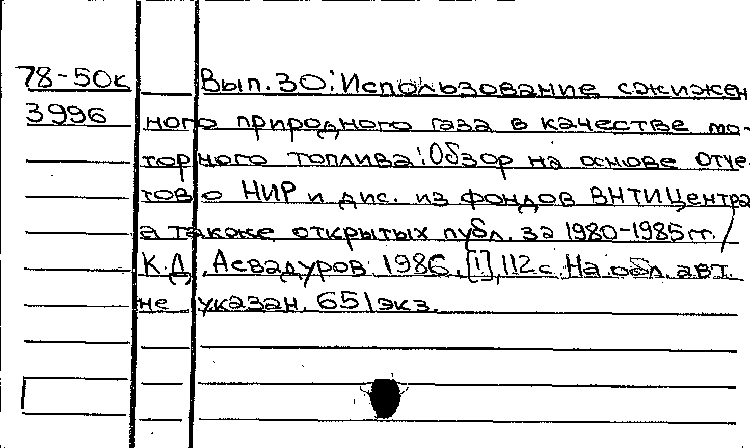 78-50к Вып. 30: Использование сжижен
3996 ного природного газа в качестве мо-
торного топлива: Обзор на основе отче
тов о НИР и дис. из фондов ВНТИЦентра
а также открытых публ. за 1980-1985 гг. /
К.Д. Асвадуров 1986. [1], 112 с. На обл. авт.
не указан. 651 экз.